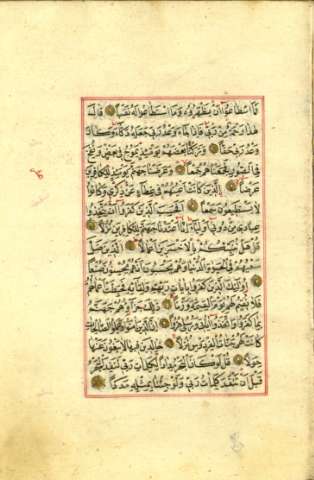 فما اسطاعوا ان يظهروه وما استطاعوا له نقبا قال
هذا رحمة من ربي فاذا جاء وعد ربي جعله دكاء وكان
وعد ربي حقا وتركنا بعضهم يومئذ يموج في بعض ونفخ
في الصور فجمعناهم جمعا وعرضنا جهنم يومئذ للكافرين
عرضا الذين كانت اعينهم في غطاء عن ذكري وكانوا
لا يستطيعون سمعا افحسب الذين كفروا ان يتخذوا
عبادي من دوني اولياء انا اعتدنا جهنم للكافرين نزلا
قل هل ننبئكم بالاخسرين اعمالا الذين ضل
سعيهم في الحيوة الدنيا وهم يحسبون انهم يحسنون صنعا
اولئك الذين كفروا بايات ربهم ولقائه فحبطت اعمالهم
فلا نقيم لهم يوم القيمة وزنا ذلك جزاؤهم جهنم
بما كفروا واتخذوا اياتي ورسلي هزوا ان الذين امنوا وعملوا الصالحات
كانت لهم جنات الفردوس نزلا خالدين فيها لا يبغون عنها
حولا قل لو كان البحر مدادا لكلمات ربي لنفد البحر
قبل ان تنفد كلمات ربي ولو جئنا بمثله مددا